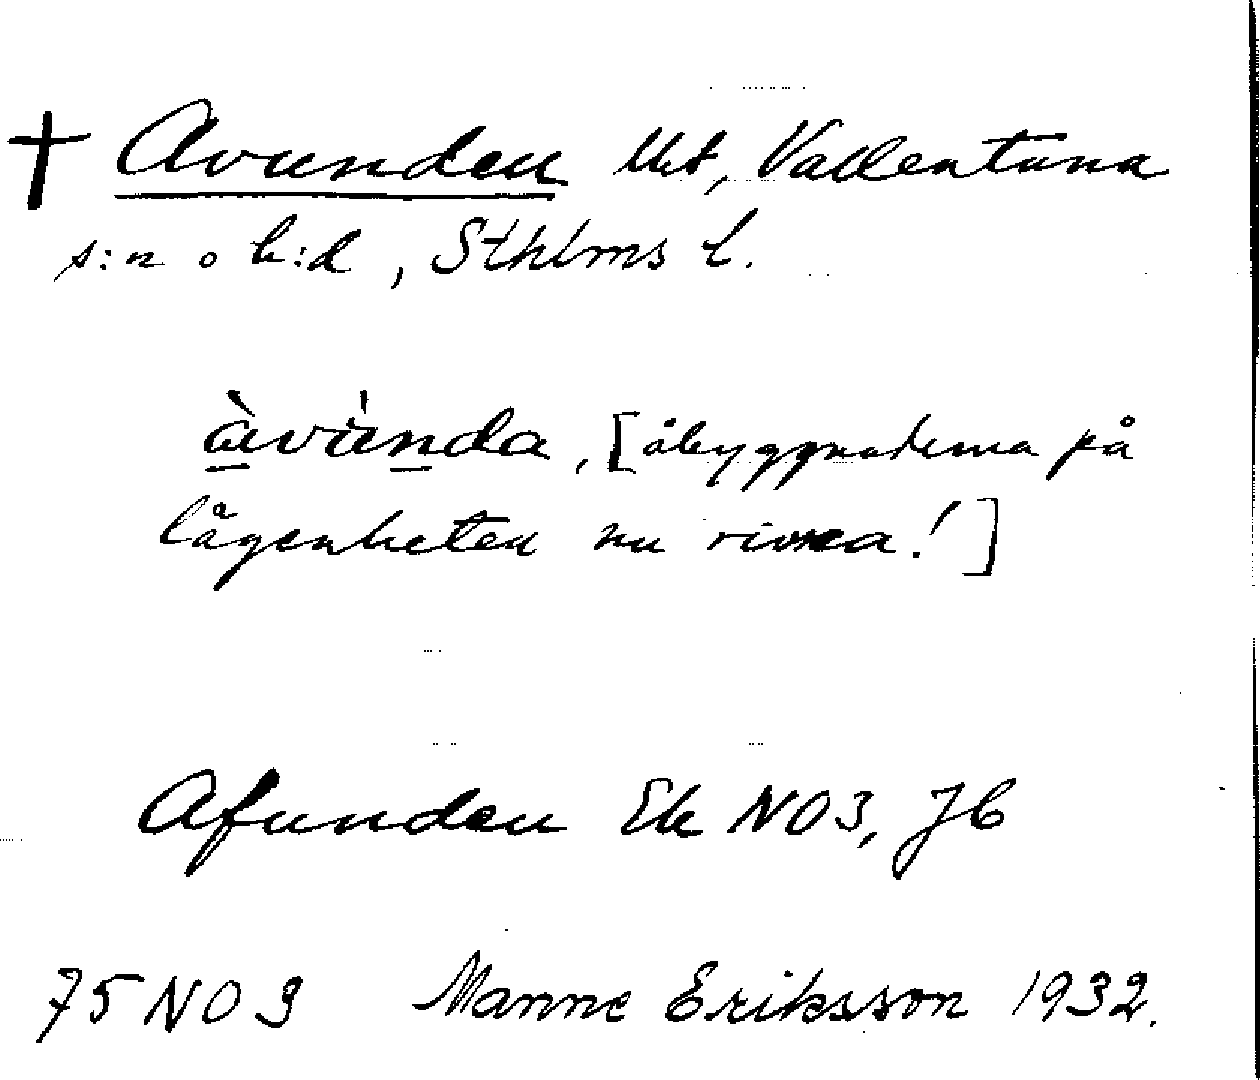 † Avunden Ut, Vallentuna
s:n o h:d, Sthlms l.
àvùnda, [åbyggnaderna på
lägenheten nu rivna!]
Afunden Ek NO3, Jb
75 NO 3 Manne Eriksson 1932.